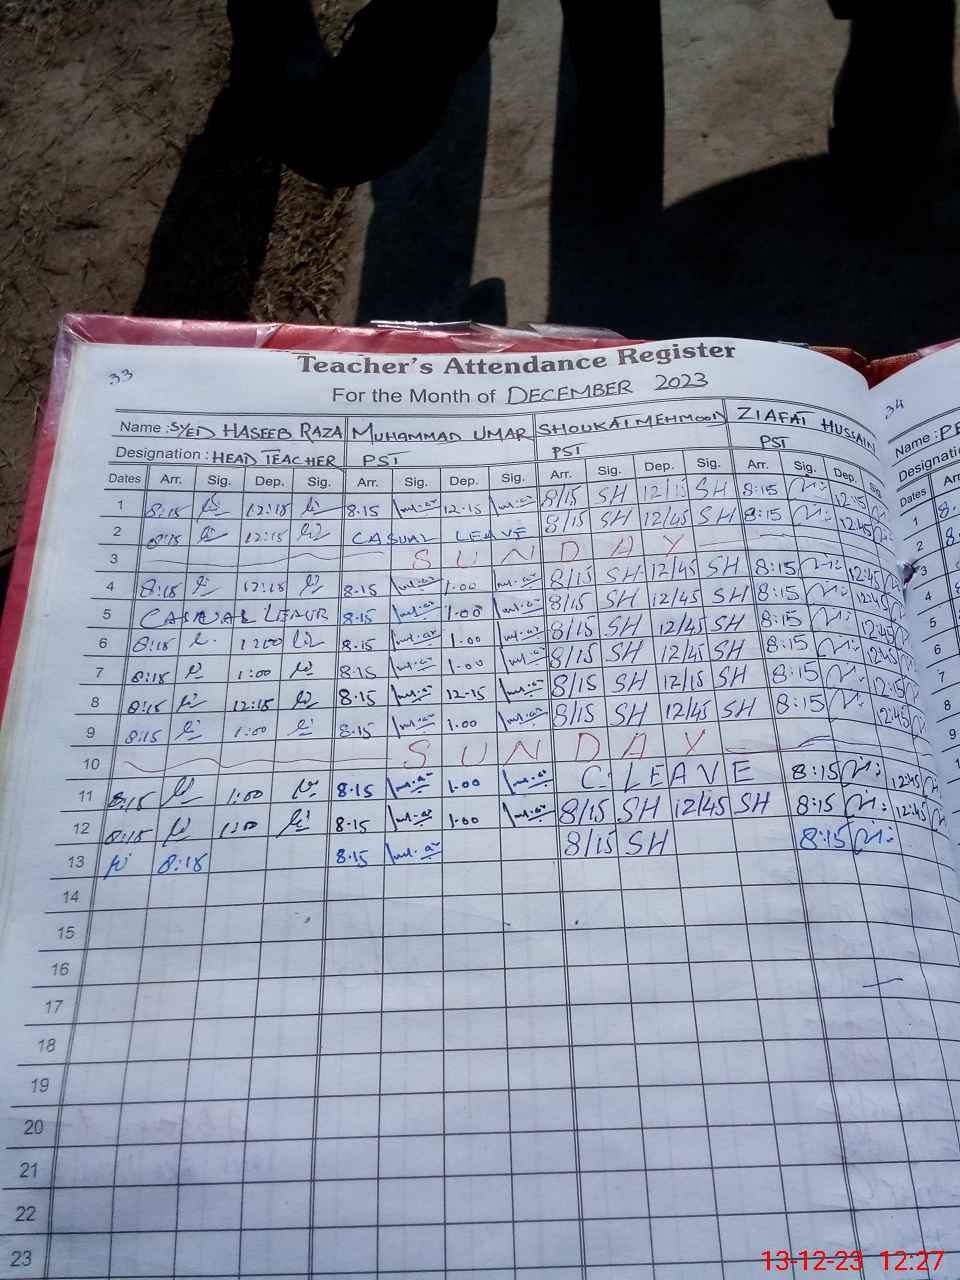 33
Teacher's Attendance Register
For the Month of DECEMBER 2023
34
Name : SYED HASEEB RAZA MUHAMMAD UMAR SHOUKAT MEHMOOD ZIAFAT HUSSAIN Name :
Designation : HEAD TEACHER PST PST PST
Dates Arr. Sig. Dep. Sig. Arr. Sig. Dep. Sig. Arr. Sig. Dep. Sig. Arr. Sig. Dep. Dates
1 8:15 12:15 8.15 12.15 8/15 SH 12/15 SH 8:15 12:15 1
2 8:15 12:15 CASUAL LEAVE 8/15 SH 12/45 SH 8:15 12:45 2
3 SUNDAY 3
4 8:15 12:15 8.15 1.00 8/15 SH 12/45 SH 8:15 12:45 4
5 8.15 1.00 8/15 SH 12/45 SH 8:15 12:45 5
6 8:15 8.15 1.00 8/15 SH 12/45 SH 8:15 12:45 6
7 8:15 1:00 8.15 1.00 8/15 SH 12/45 SH 8:15 12:45 7
8 8:15 12:15 8.15 12.15 8/15 SH 12/15 SH 8:15 12:15 8
9 8:15 1:00 8.15 1.00 8/15 SH 12/45 SH 8:15 12:45 9
10 SUNDAY 10
11 8:15 1:00 8.15 1.00 C. LEAVE 8:15 12:45 11
12 8:15 1:00 8.15 1.00 8/15 SH 12/45 SH 8:15 12:45 12
13 8:15 8.15 8/15 SH 8:15 13
14
15
16
17
18
19
20
21
22
23
13-12-23 12:27